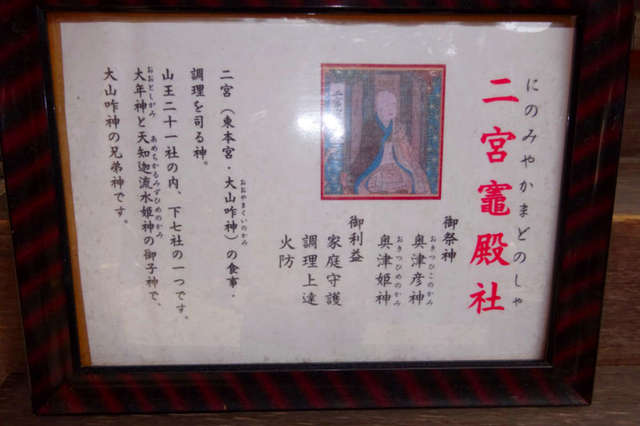 にのみやかまどのしゃ
二宮竈殿社
御祭神
おきつひこのかみ
奥津彦神
おきつひめのかみ
奥津姫神
御利益
家庭守護
調理上達
火防
二宮
おおやまくいのかみ
二宮（東本宮・大山咋神）の食事・
調理を司る神。
山王二十一社の内、下七社の一つです。
おおどしかみ　あめちかるみずひめのかみ
大年神と天知迦流水姫神の御子神で、
大山咋神の兄弟神です。